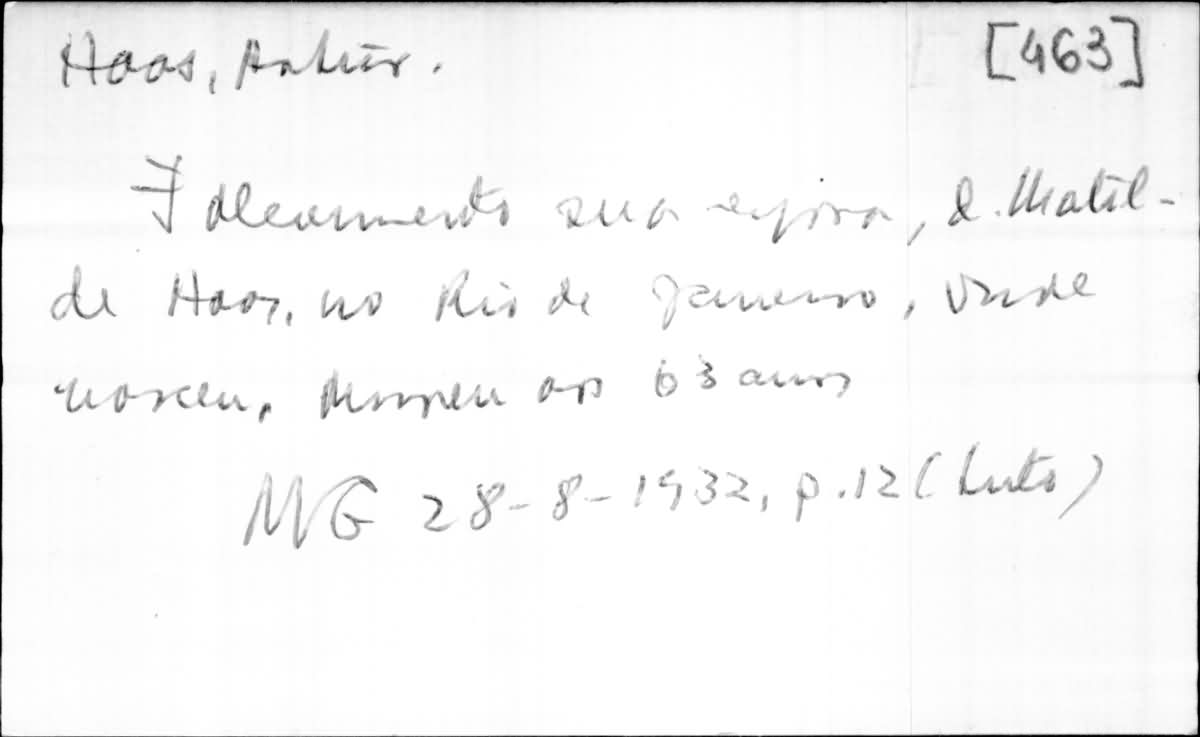 Haas, Artur. [463]
Falecimento sua esposa, d. Matil-
de Haas, no Rio de Janeiro, onde
nasceu. Morreu aos 63 anos
MG 28-8-1932, p.12 (Luto)